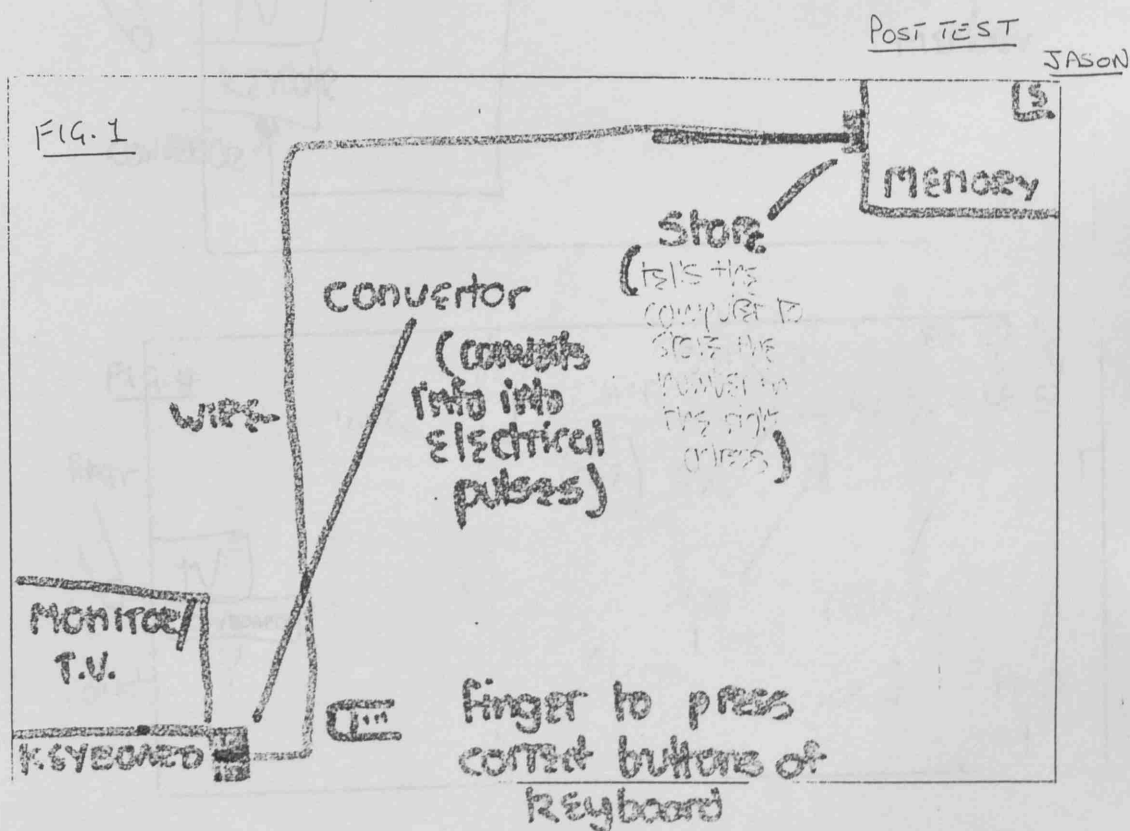 POST TEST
JASON
FIG. 1
LS.
MEMORY
Store
(tells the
computer to
store the
number in
the right
adress)
convertor
(converts
info into
electrical
pulses)
WIRE
MONITOR/
T.V.
KEYBOARD
finger to press
correct buttons of
Keyboard